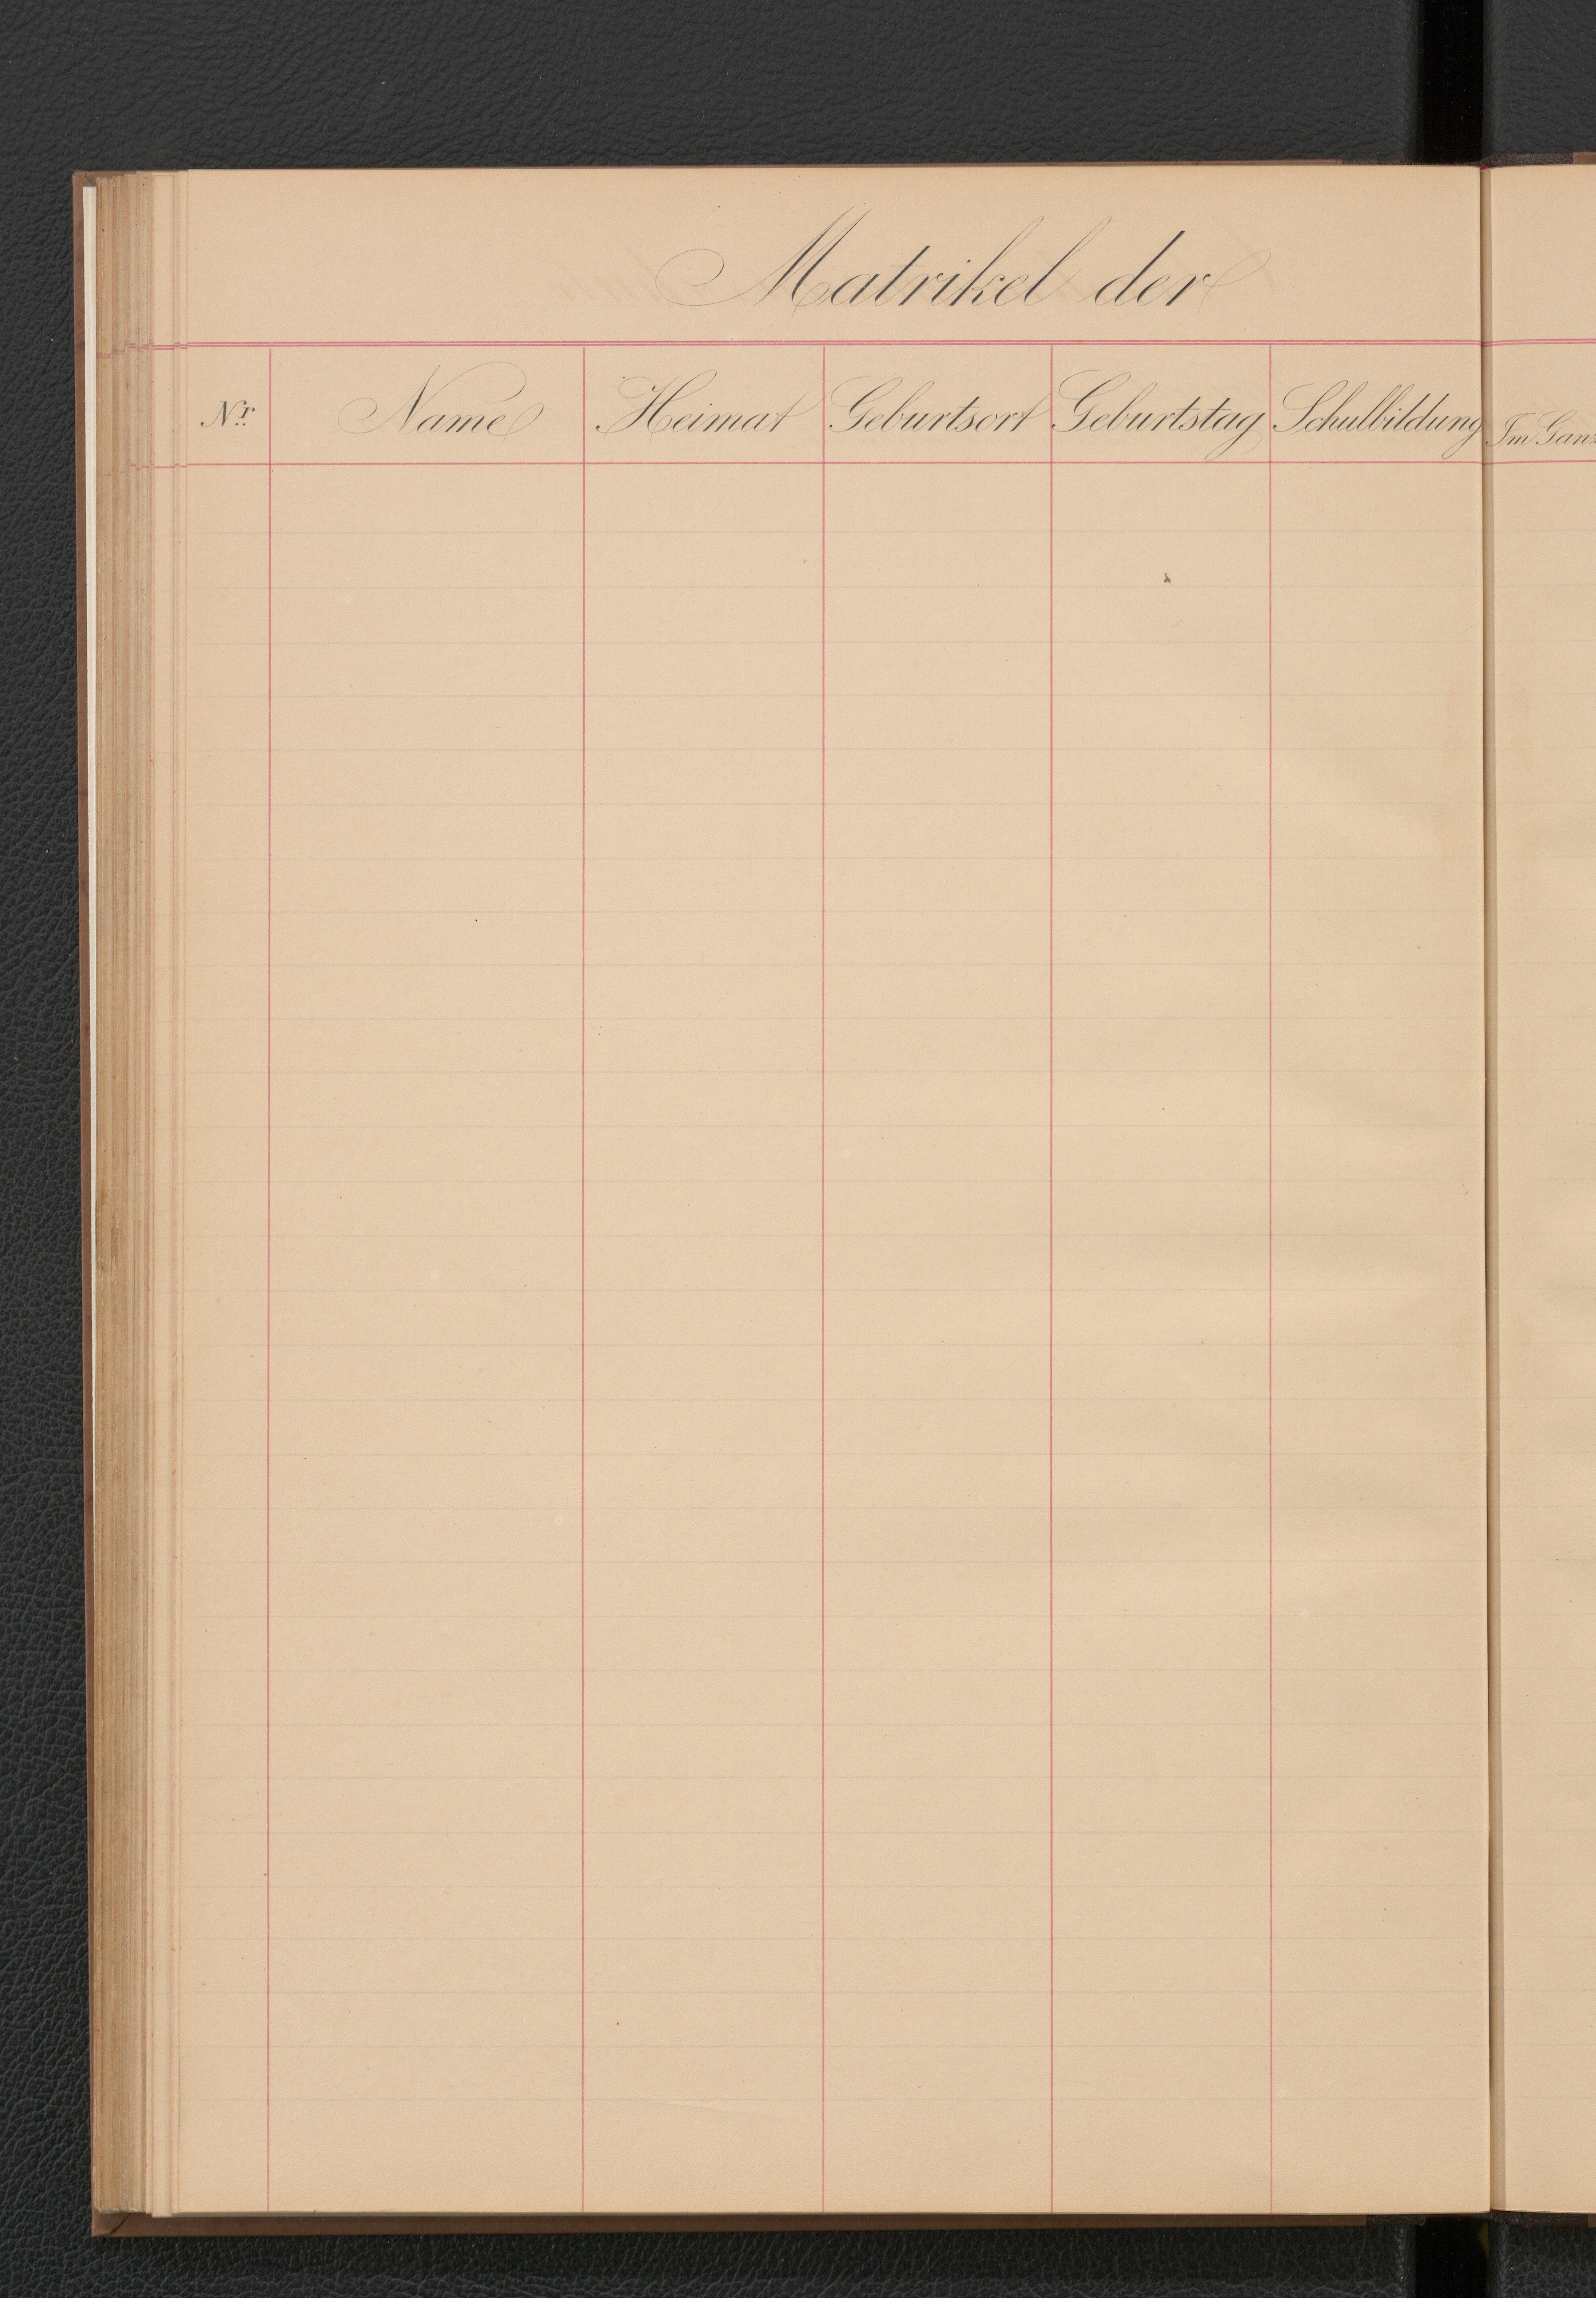 Matrikel der
Nr. Name Heimat Geburtsort Geburtstag Schulbildung Im Ganz